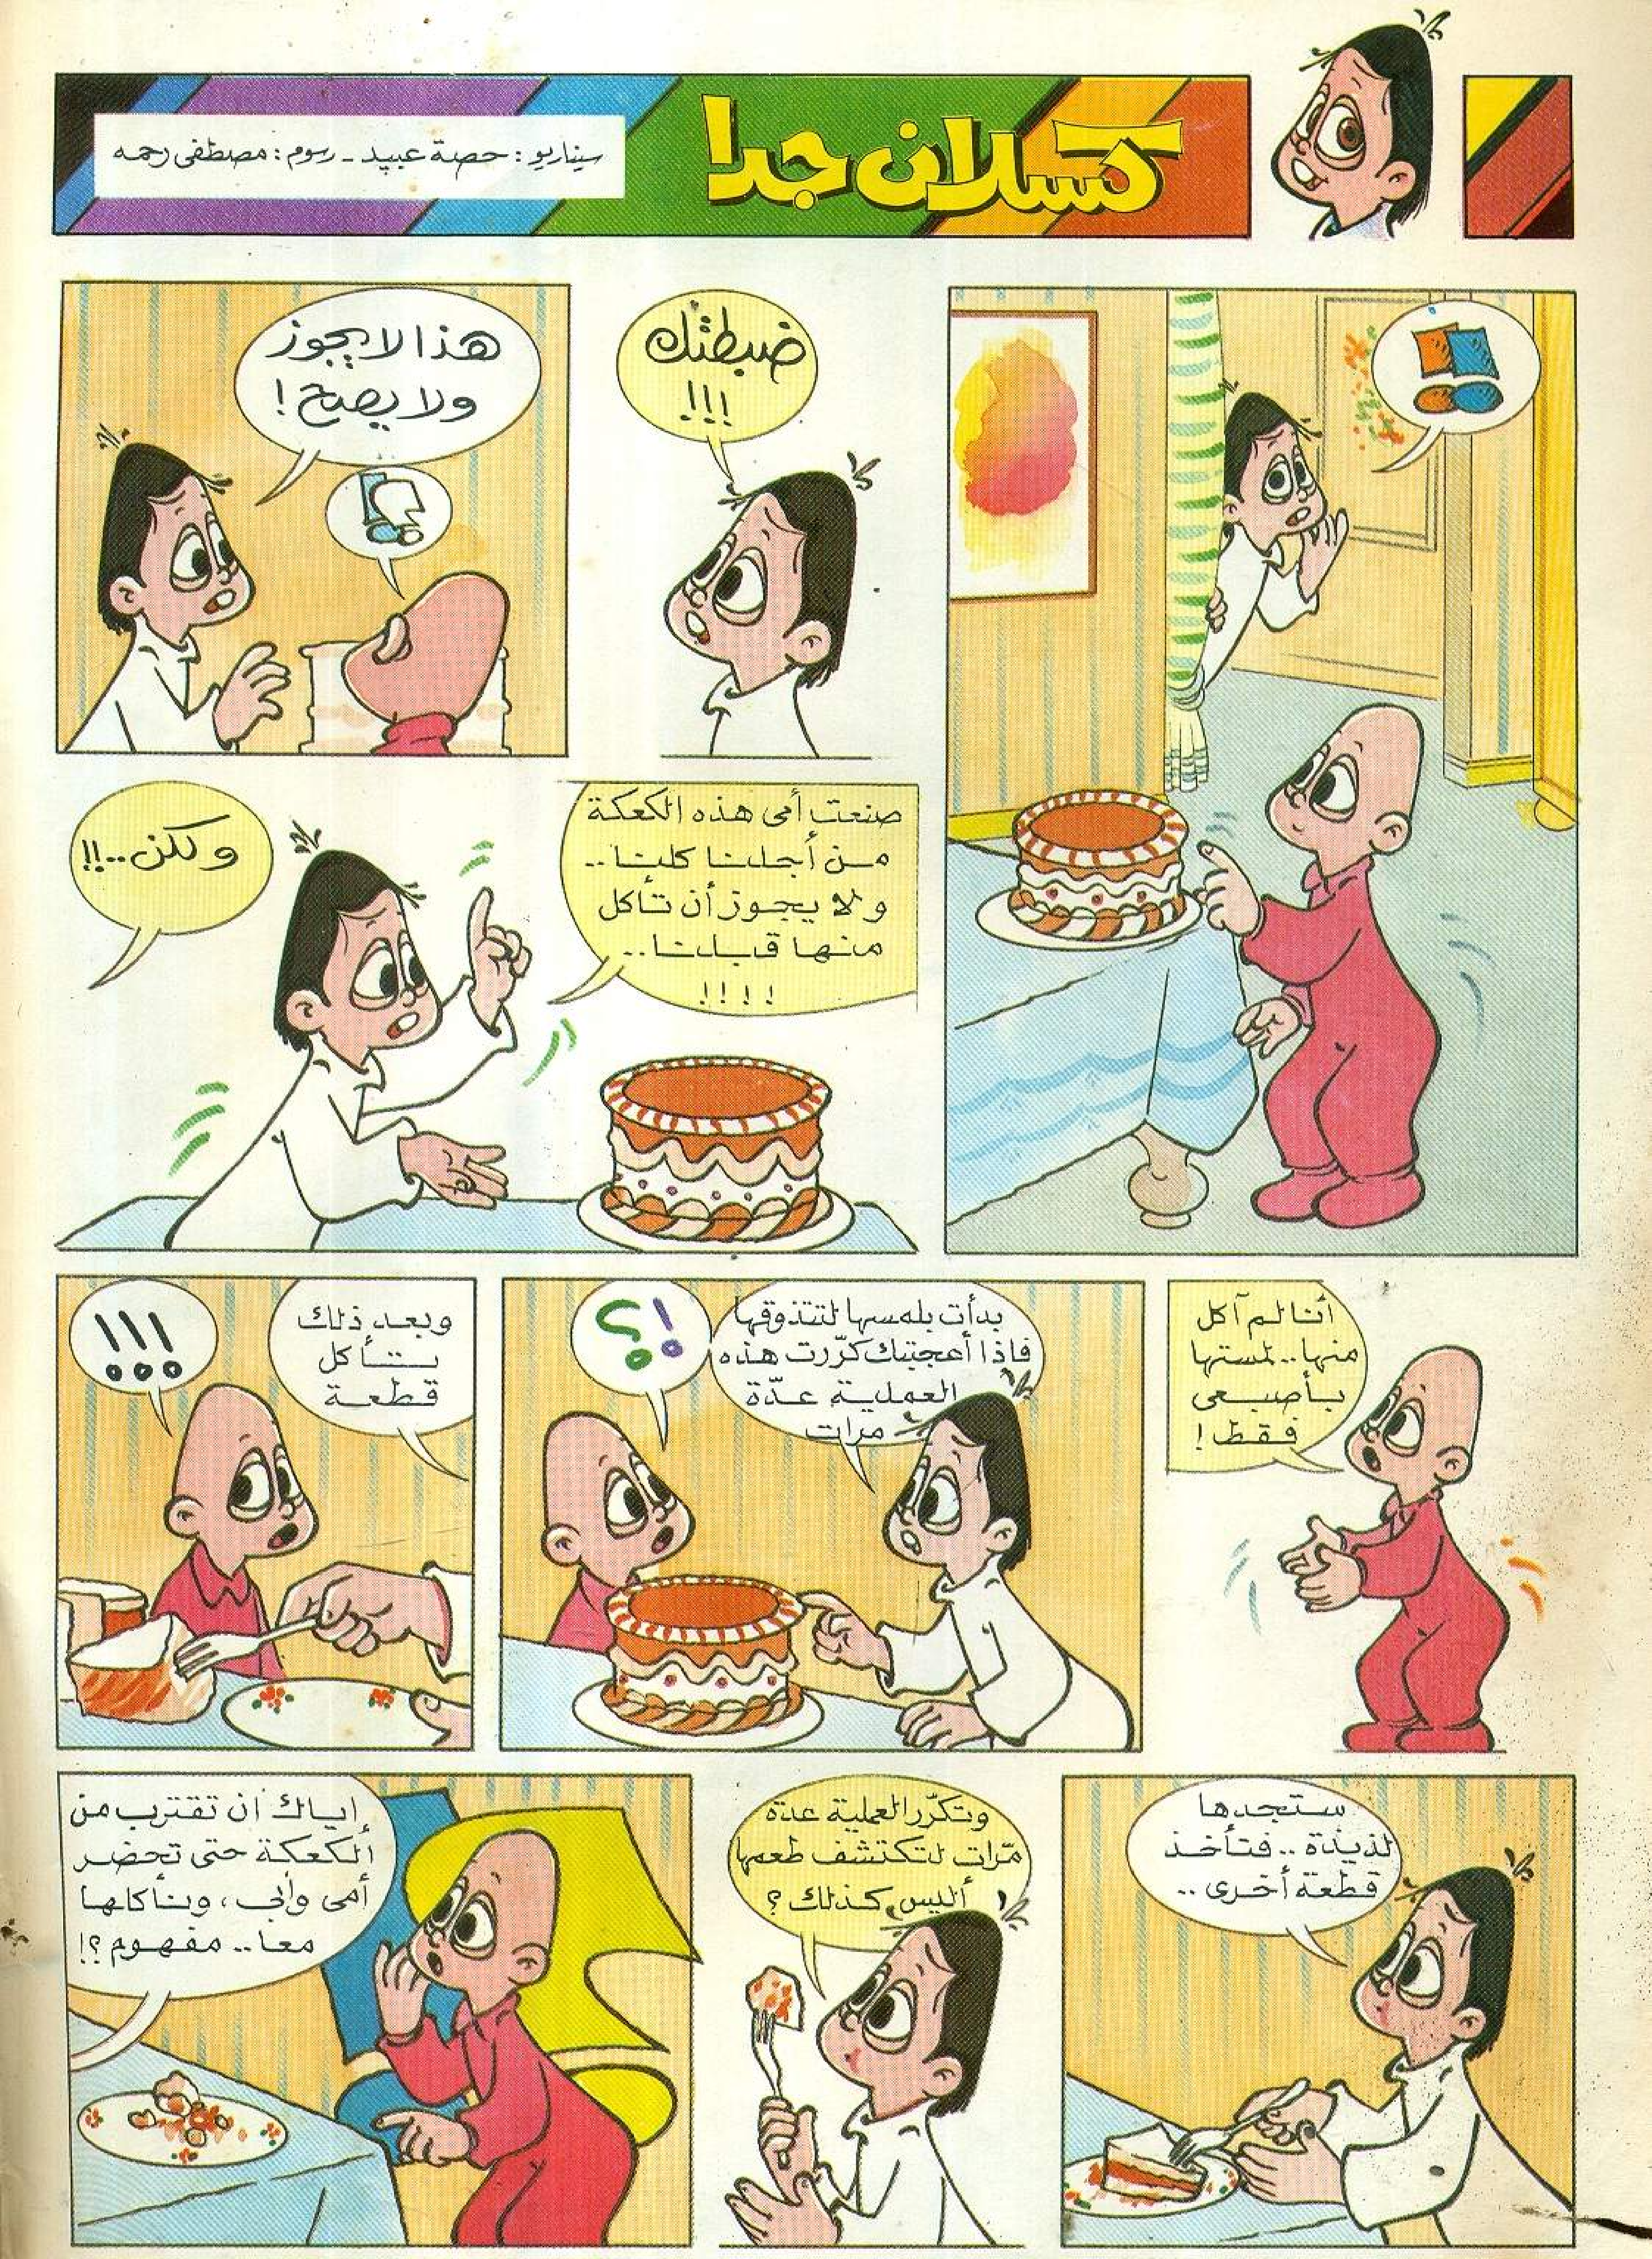 كسلان جدا
سيناريو: حصة عبيد - رسوم: مصطفى رحمه
!!
ضبطتك
!!!
هذا لا يجوز
ولا يصح!
!
صنعت أمى هذه الكعكة
من أجلنا كلنا..
ولا يجوز أن تأكل
منها قبلنا..
!!!!
ولكن..!!
أنا لم آكل
منها.. لمستها
بأصبعى
فقط!
بدأت بلمسها لتتذوقها
فاذا أعجبتك كرّرت هذه
العملية عدّة
مرات
!؟
وبعد ذلك
تأكل
قطعة
!!!
ستجدها
لذيذة.. فتأخذ
قطعة أخرى..
وتكرّر العملية عدة
مرّات لتكتشف طعمها
أليس كذلك؟
إياك ان تقترب من
الكعكة حتى تحضر
أمى وأبي، ونأكلها
معا.. مفهوم؟!
؟!